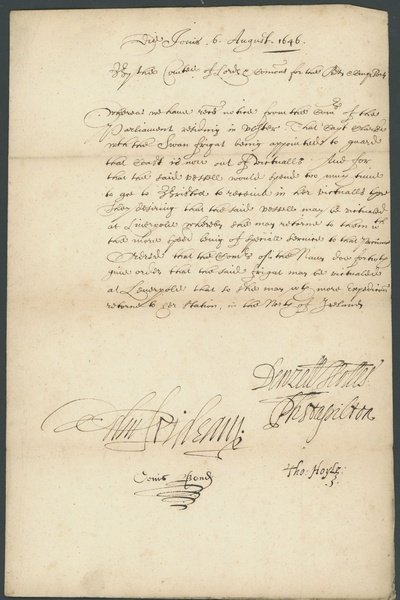 Die Jovis .6. August. 1646.
By the Comtee of Lords & Comons for the
Whereas we have recd notice from the Comrs of the
Parliament residing in Vlster That Capt Clarke
wth the Swan frigat being appointed to guard
that Coast is now out of Victualls And for
that the said vessell would spend too much time
to go to Bristoll to receive in her victualls there
They desiring that the said vessell may be victualed
at Liverpole whereby she may returne to them wth
the more speed being of speciall service to that Province
Ordered that the Comrs of the Navy doe forthwth
give order that the said frigat may be victualled
at Leverpole that so she may wth more Expedition
returne to her station in the North of Ireland
Denzell Holles
Ph Stapilton
Edm Prideaux
Tho: Hoyle
Denis Bond